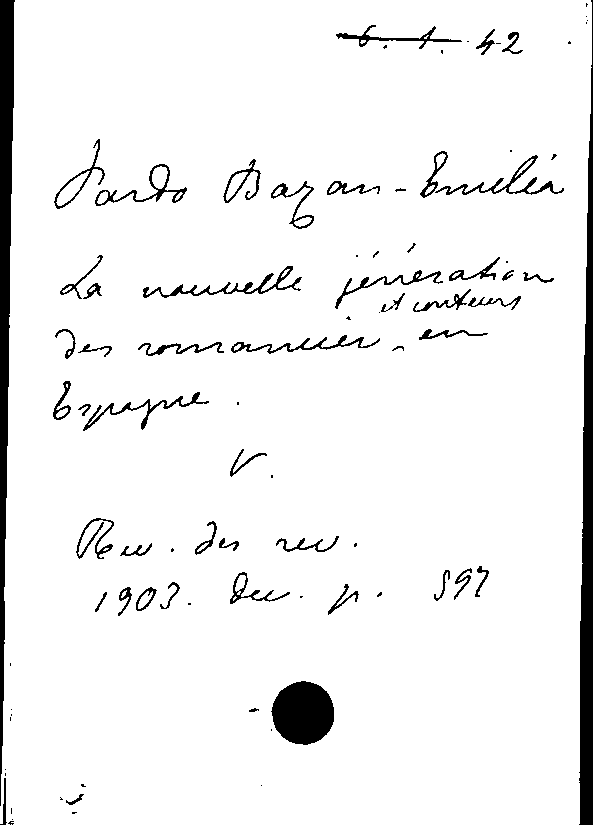 6. 1. 42
Pardo Bazan - Emilia
La nouvelle jénération
et conteurs
des romancier en
Espagne.
V.
Rev. des rev.
1903. dec. p. 597